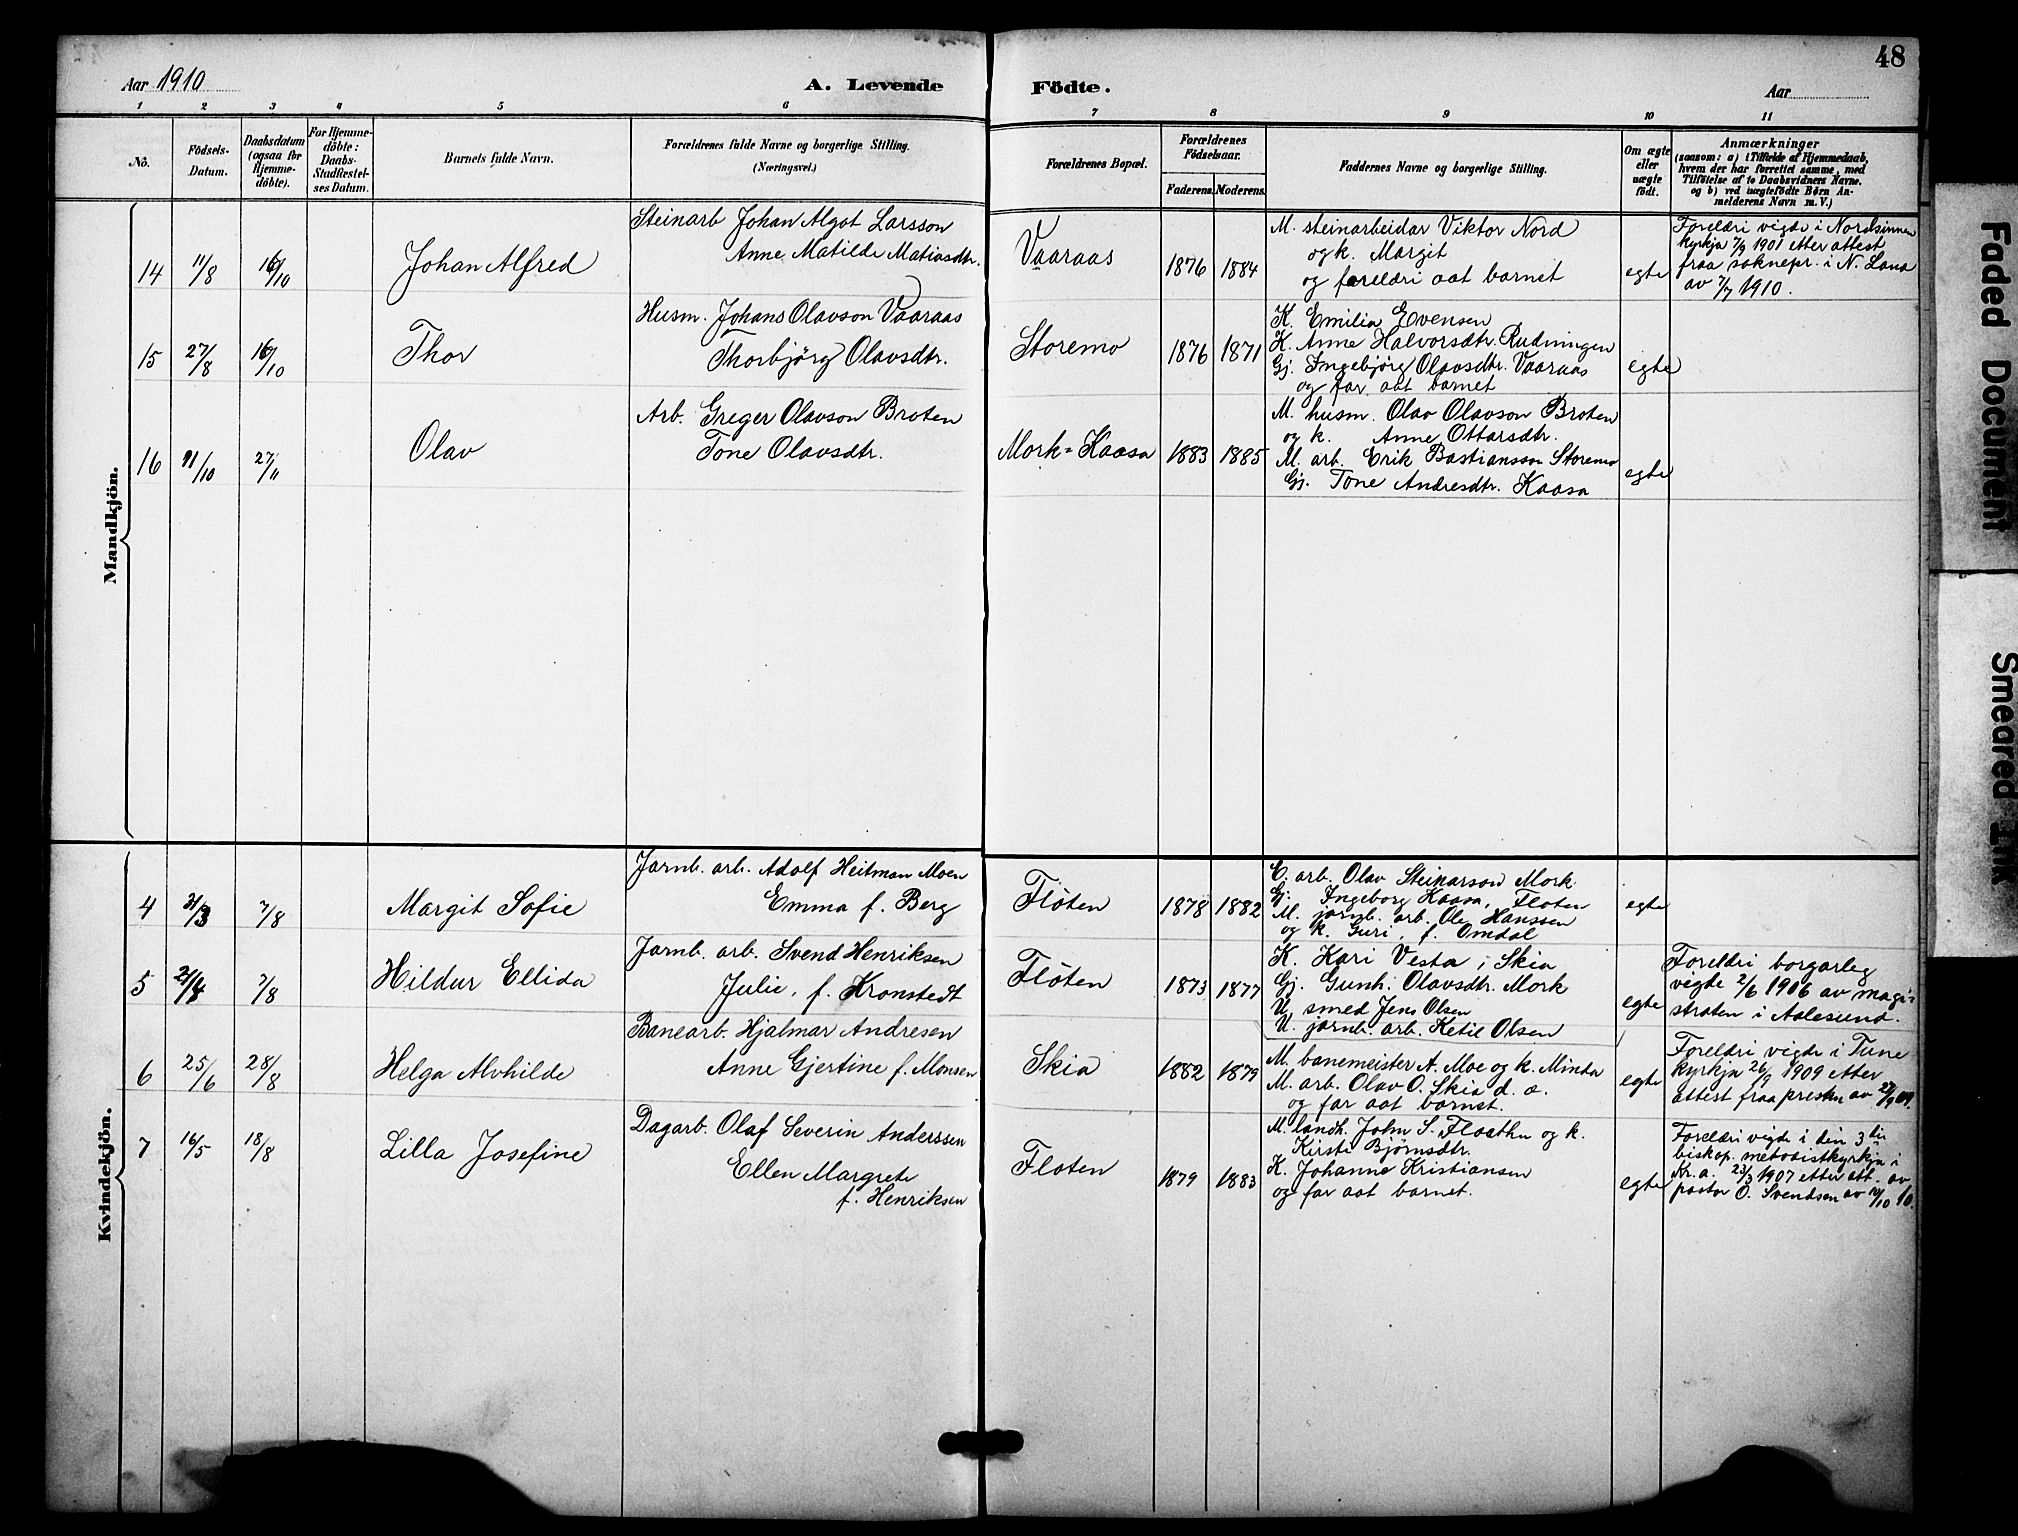 48
Aar 1910
A. Levende
Födte.
Aar
1 2 3 4 5 6 7 8 9 10 11
No.
Födsels-Datum.
Daabsdatum (ogsaa for Hjemme-döbte).
For Hjemme-döbte: Daabs-Stadfæstel-ses Datum.
Barnets fulde Navn.
Forældrenes fulde Navne og borgerlige Stilling.
(Næringsvei.)
Forældrenes Bopæl.
Forældrenes Födselsaar.
Faderens. Moderens.
Faddernes Navne og borgerlige Stilling.
Om ægte eller uægte födt.
Anmærkninger
(saasom: a) i Tilfælde af Hjemmedaab,
hvem der har forrettet samme, med
Tilföielse af to Daabsvidners Navne.
og b) ved uægtefödte Börn An-
melderens Navn m. V.)
Mandkjön.
14 11/8 16/10 Johan Alfred
Steinarb Johan Algot Larsson
Anne Matilde Matiasdtr.
Vaaraas 1876 1884
M. steinarbeidar Viktor Nord
og k. Margit
og foreldri aat barnet
egte
Foreldri vigde i Nordsinnen
kyrkja 7/9 1901 etter attest
fraa soknepr. i N. Land
av 7/7 1910.
15 27/8 16/10 Thor
Husm. Johans Olavson Vaaraas
Thorbjörg Olavsdtr.
Storemo 1876 1871
K. Emilia Evensen
K. Anne Halvorsdtr. Rudningen
Gj. Ingebjörg Olavsdtr. Vaaraas
og far aat barnet
egte
16 11/10 27/11 Olav
Arb. Greger Olavson Broten
Tone Olavsdtr.
Mork=Kaasa 1883 1885
M. husm. Olav Olavson Broten
og k. Anne Ottarsdtr.
M. arb. Erik Bastiansson Storemo
Gj. Tone Andresdtr. Kaasa
egte
Kvindekjön.
4 31/3 7/8 Margit Sofie
Jarnb. arb. Adolf Heitman Moen
Emma f. Berg
Flöten 1878 1882
U. arb. Olav Steinarson Mork
Gj. Ingeborg Kaasa, Floten
M. jarnb. arb. Ole Hanssen
og k. Guri, f. Omdal
egte
5 21/4 7/8 Hildur Ellida
Jarnb. arb. Svend Henriksen
Julie, f. Kronstedt
Flöten 1873 1877
K. Kari Vesta, i Skia
Gj. Gunh. Olavsdtr. Mork
U. smed Jens Olsen
U. jarnb. arb. Ketil Olsen
egte
Foreldri borgarleg
vegde 2/6 1906 av magi-
straten i Aalesund.
6 25/6 28/8 Helga Alvhilde
Banearb. Hjalmar Andresen
Anne Gjertine f. Monsen
Skia 1882 1879
M. banemeister A. Moe og k. Minda
M. arb. Olav O. Skia d. æ.
og far aat barnet.
egte
Foreldri vigde i Tune
kyrkja 26/9 1909 etter
attest fraa presten av 27/9 09.
7 16/5 18/8 Lilla Josefine
Dagarb. Olaf Severin Anderssen
Ellen Margrete
f. Henriksen
Floten 1879 1883
M. landh. John S. Floathn og k.
Kirsti Bjørnsdtr.
K. Johanne Kristiansen
og far aat barnet.
egte
Foreldri vigde i den 3die
biskop. metodistkyrkja i
Kr.a. 23/3 1907 etter att. av
pastor O. Svendsen av /10 10.
Faded Document
Smeared Ink